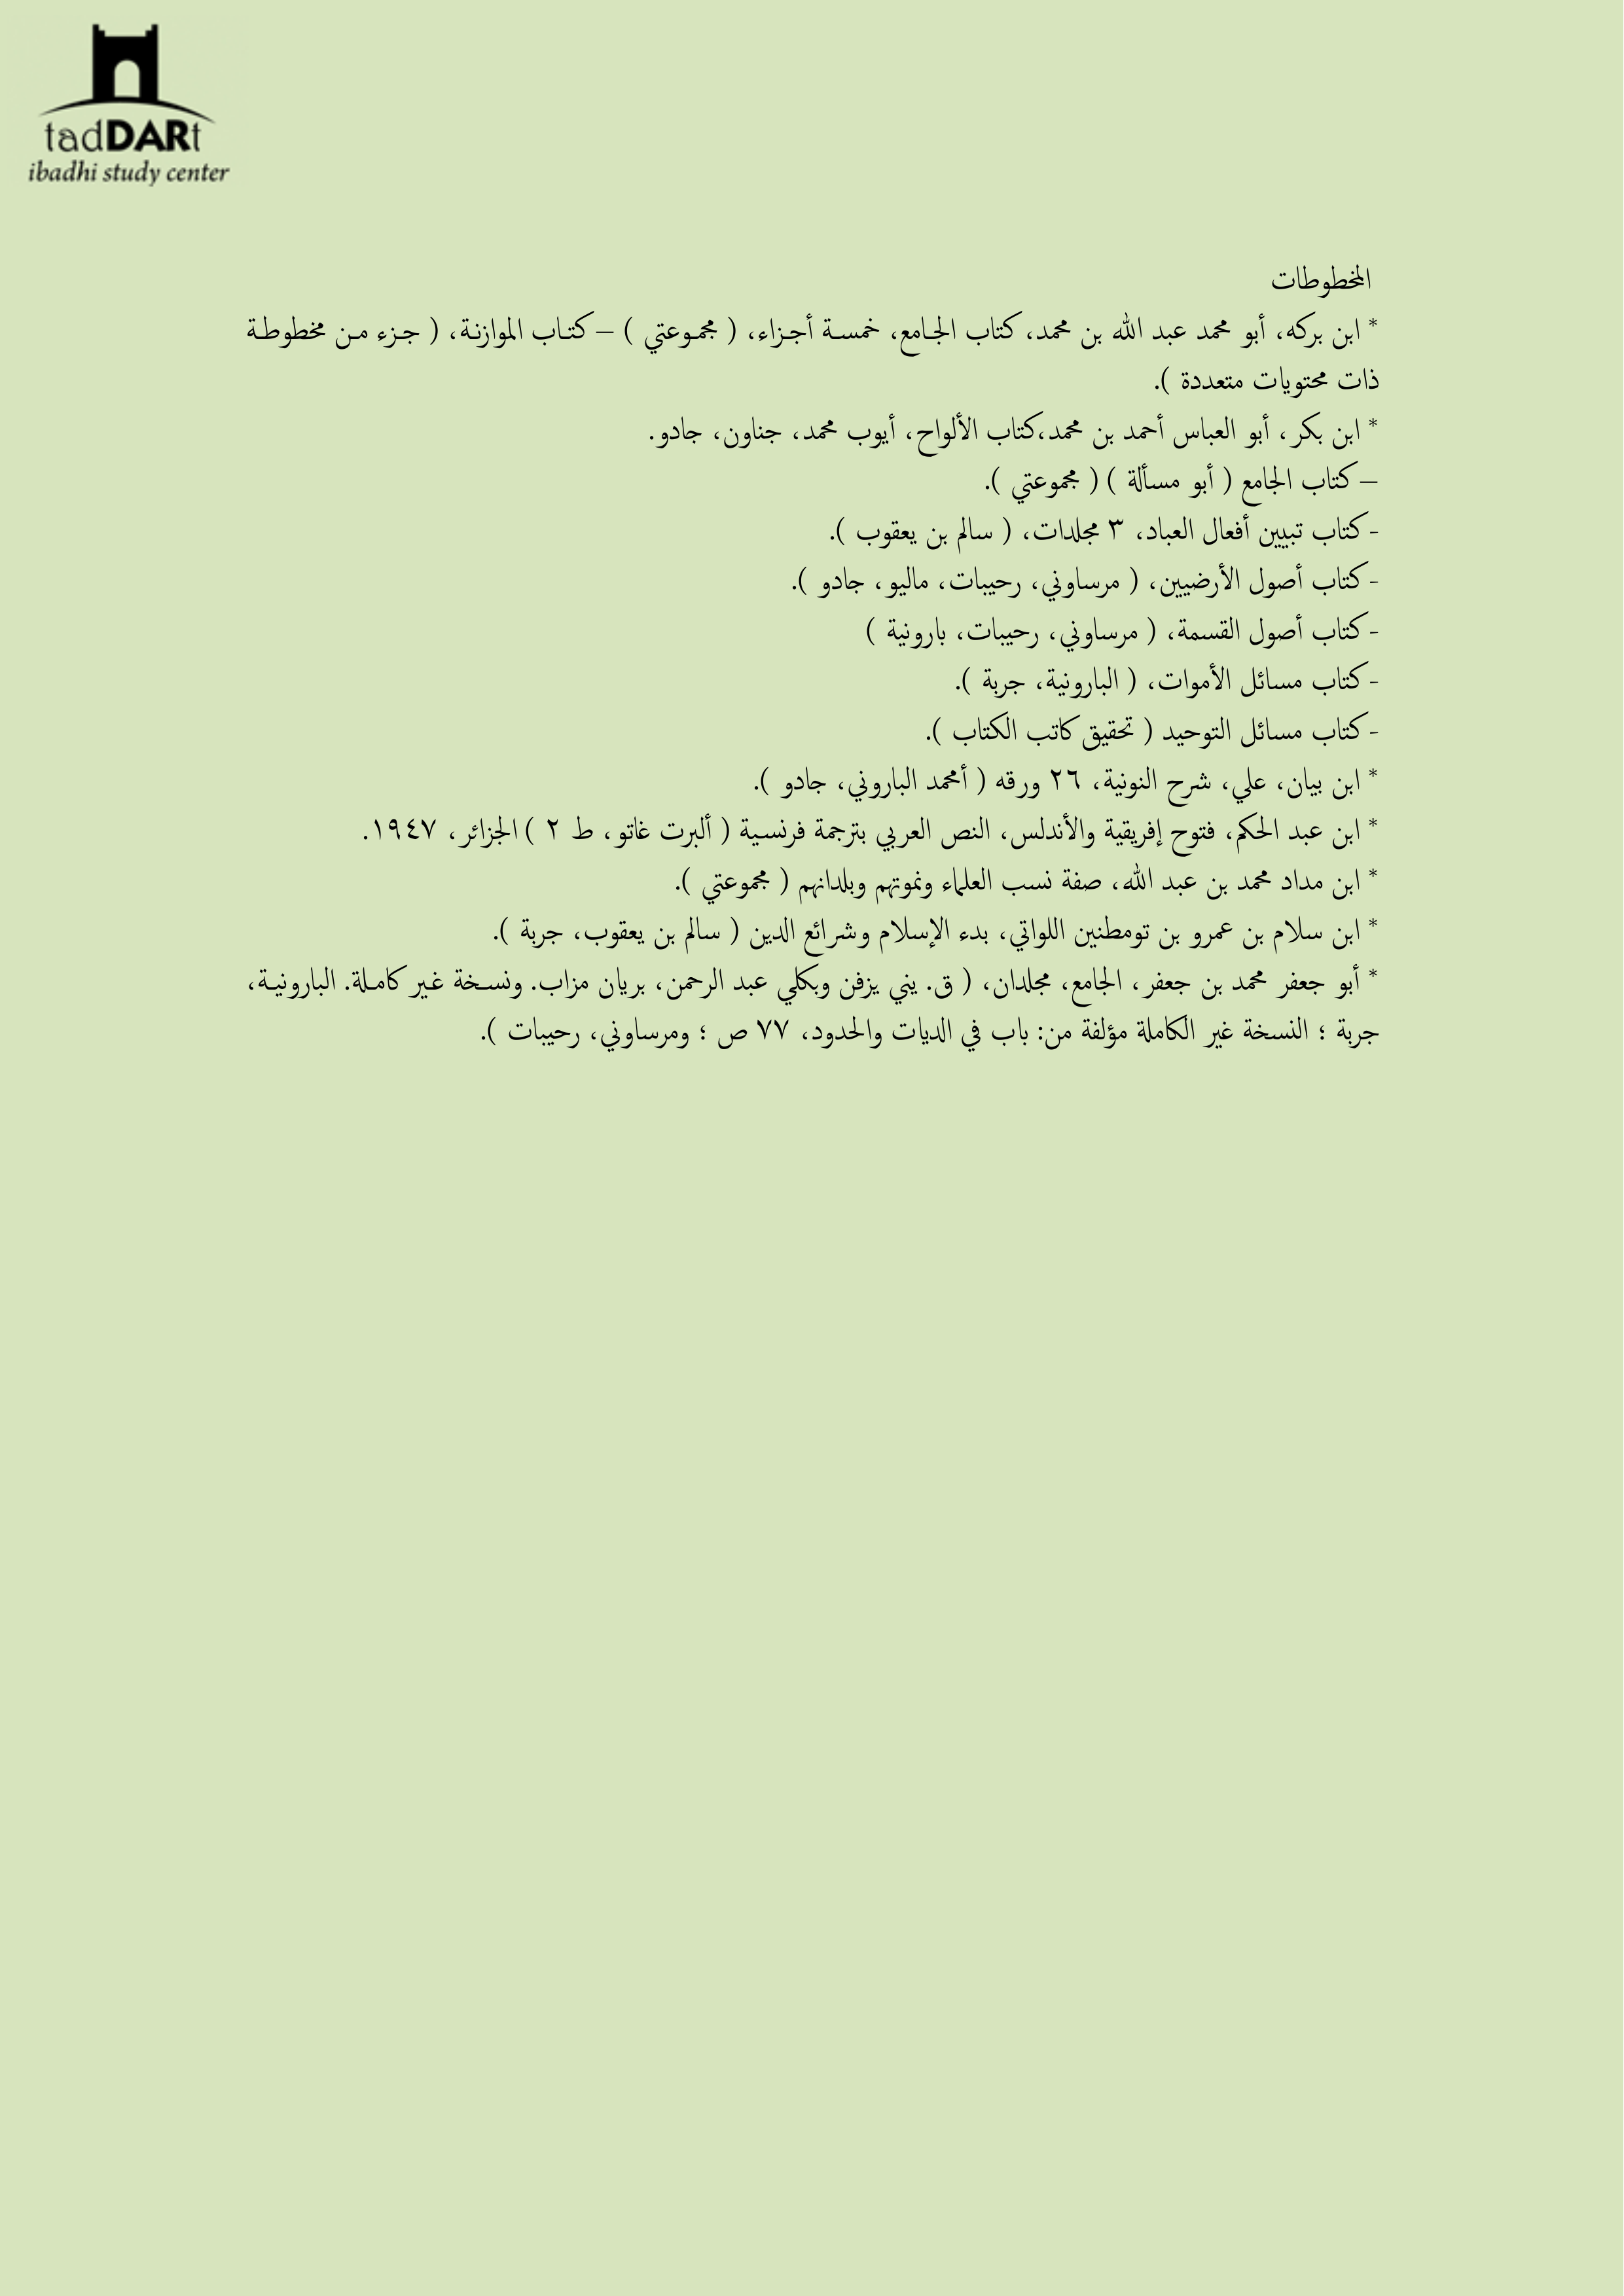 tadDARt
ibadhi study center
المخطوطات
* ابن بركه، أبو محمد عبد الله بن محمد، كتاب الجامع، خمسة أجزاء، ( مجموعتي ) – كتاب الموازنة، ( جزء من مخطوطة
ذات محتويات متعددة ).
* ابن بكر، أبو العباس أحمد بن محمد،كتاب الألواح، أيوب محمد، جناون، جادو.
– كتاب الجامع ( أبو مسألة ) ( مجموعتي ).
- كتاب تبيين أفعال العباد، ٣ مجلدات، ( سالم بن يعقوب ).
- كتاب أصول الأرضيين، ( مرساوني، رحيبات، ماليو، جادو ).
- كتاب أصول القسمة، ( مرساوني، رحيبات، بارونية )
- كتاب مسائل الأموات، ( البارونية، جربة ).
- كتاب مسائل التوحيد ( تحقيق كاتب الكتاب ).
* ابن بيان، علي، شرح النونية، ٢٦ ورقه ( أمحمد الباروني، جادو ).
* ابن عبد الحكم، فتوح إفريقية والأندلس، النص العربي بترجمة فرنسية ( ألبرت غاتو، ط ٢ ) الجزائر، ١٩٤٧.
* ابن مداد محمد بن عبد الله، صفة نسب العلماء ونموتهم وبلدانهم ( مجموعتي ).
* ابن سلام بن عمرو بن تومطنين اللواتي، بدء الإسلام وشرائع الدين ( سالم بن يعقوب، جربة ).
* أبو جعفر محمد بن جعفر، الجامع، مجلدان، ( ق. يني يزفن وبكلي عبد الرحمن، بريان مزاب. ونسخة غير كاملة. البارونية،
جربة ؛ النسخة غير الكاملة مؤلفة من: باب في الديات والحدود، ٧٧ ص ؛ ومرساوني، رحيبات ).